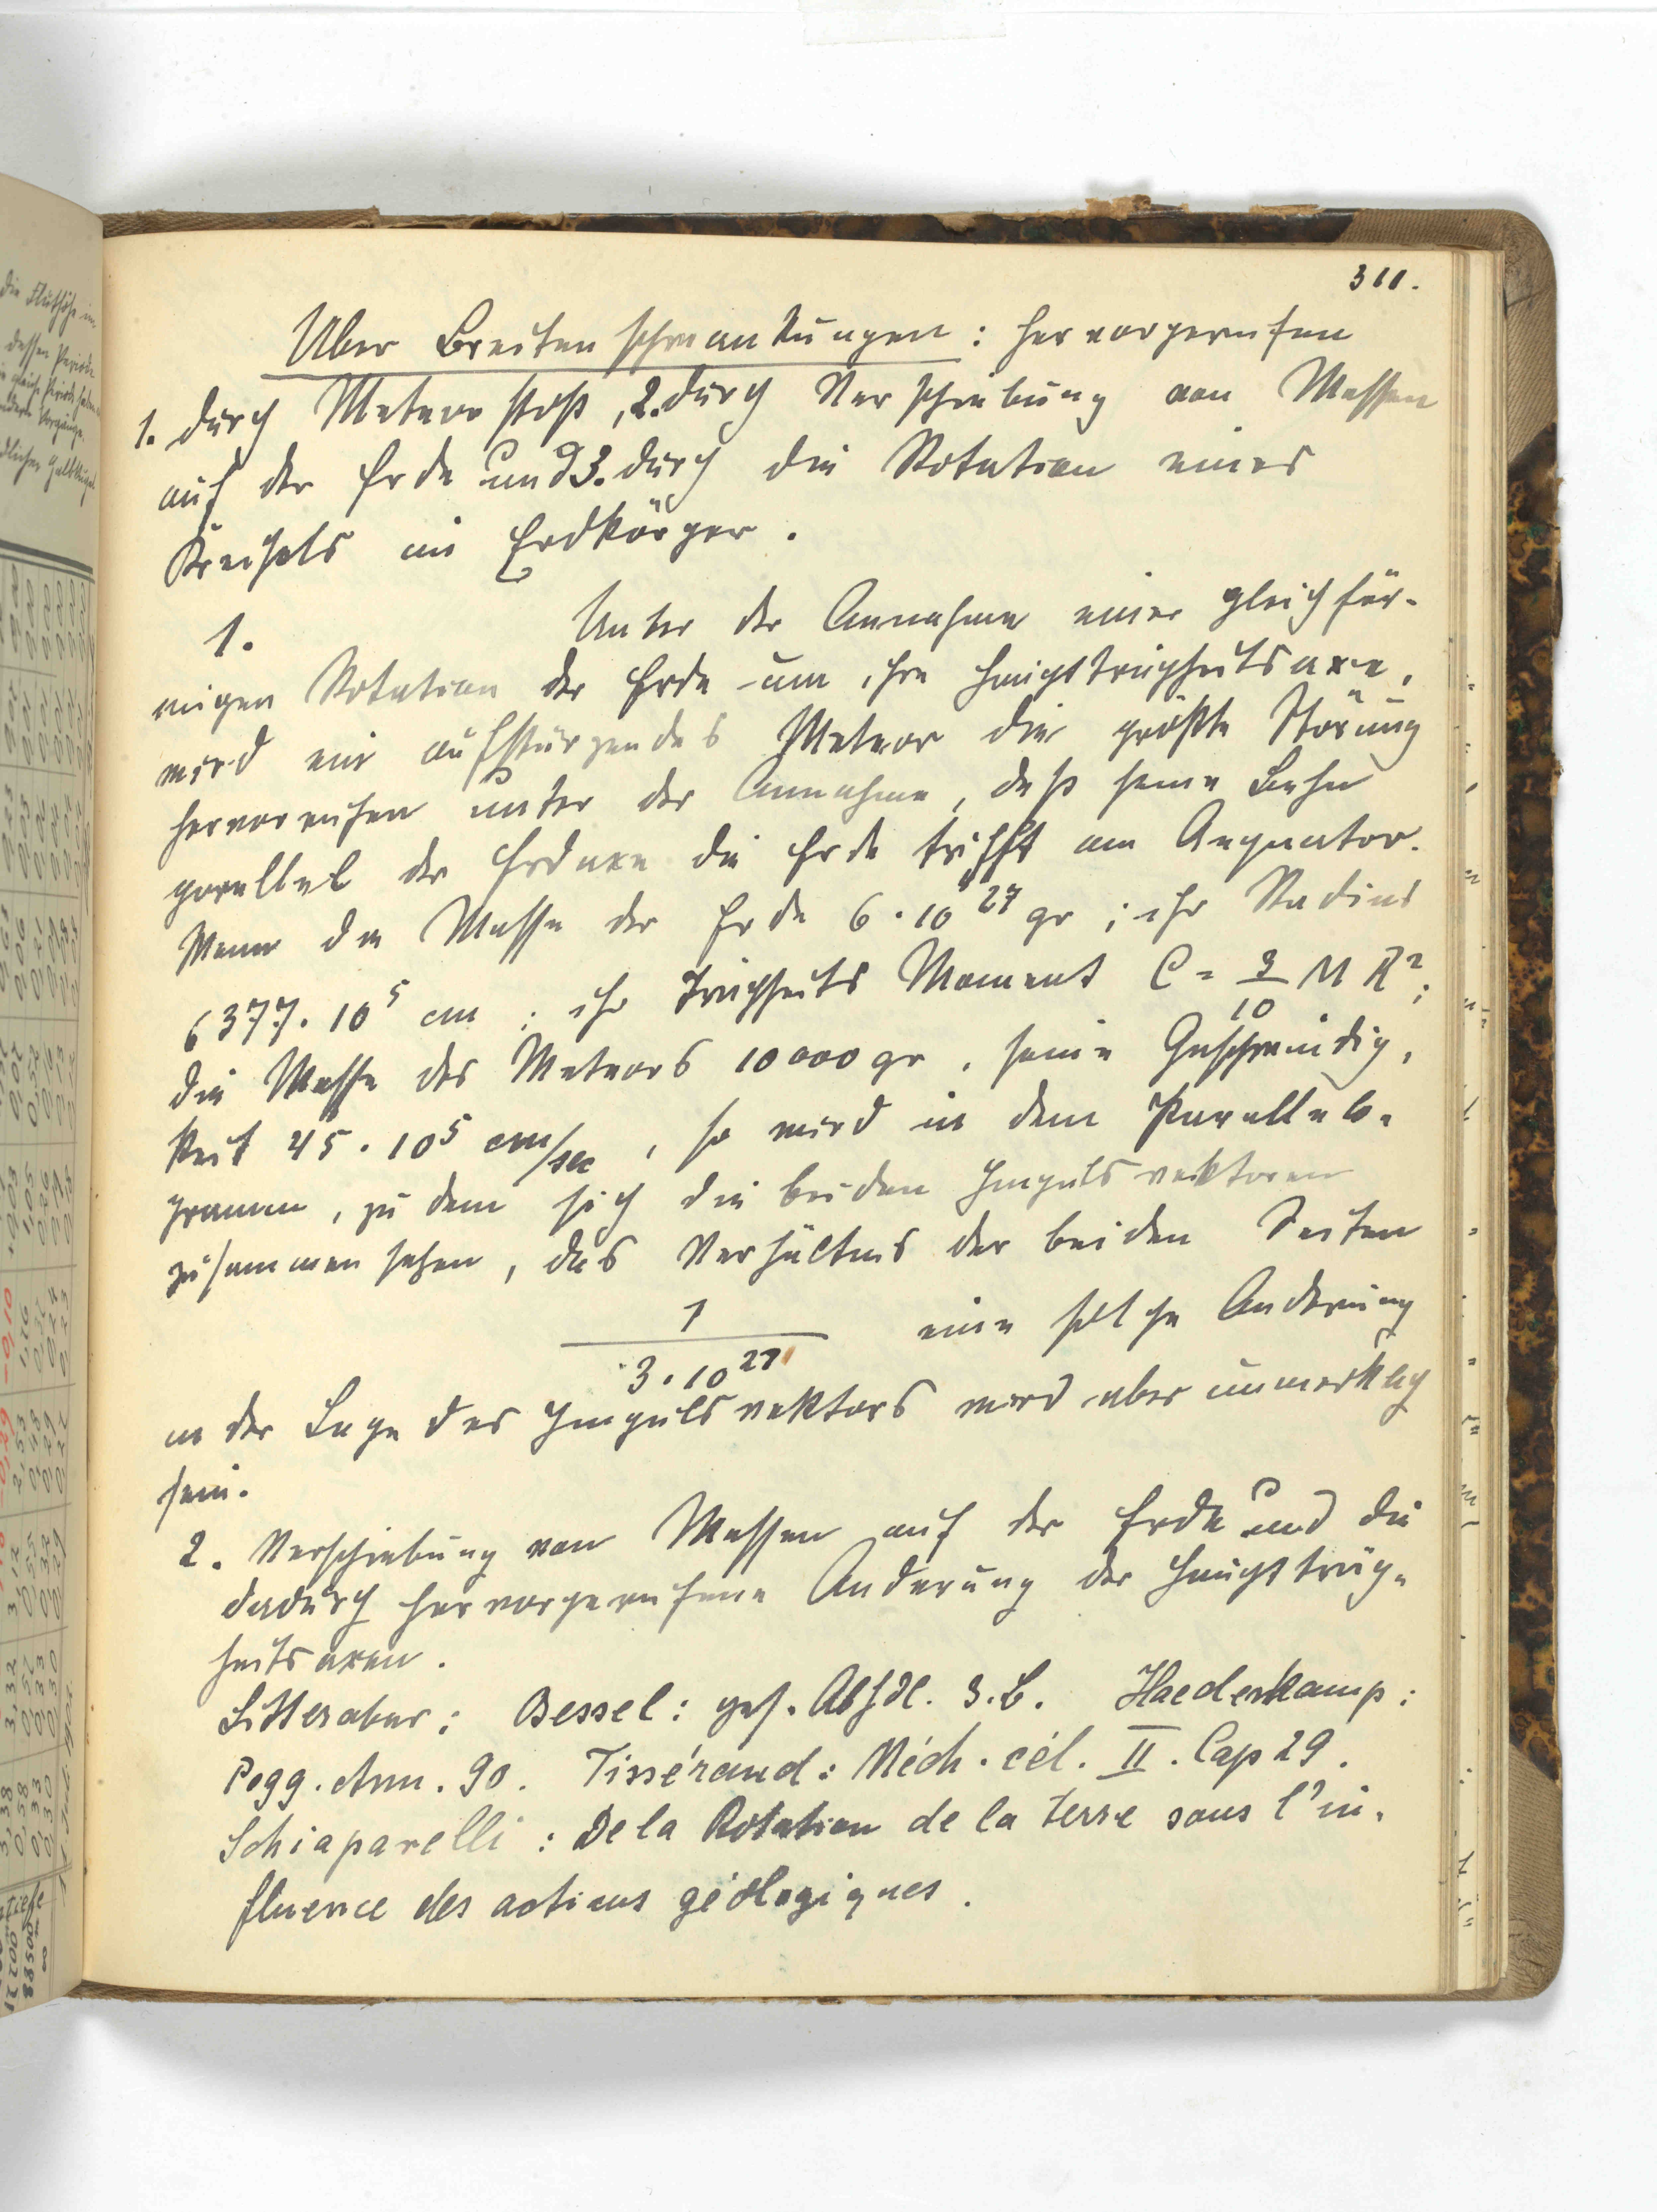 311.
Über Breitenschwankungen: hervorgerufen
1. durch Meteorstoß, 2. durch Verschiebung von Massen
auf der Erde und 3. durch die Rotation eines
Kreisels im Erdkörper.
1. Unter der Annahme einer gleichför-
migen Rotation der Erde um ihre Hauptträgheitsaxe,
wird ein aufstürzendes Meteor die größte Störung
hervorrufen unter der Annahme, daß seine Bahn
parallel der Erdaxe die Erde trifft am Aequator.
Wenn die Masse der Erde 6·10^27 gr; ihr Radius
6377·10^5 cm; ihr Trägheits Moment C = 3/10 M R²;
die Masse des Meteors 10000 gr, seine Geschwindig-
keit 45·10^5 cm/sec, so wird in dem Parallelo-
gramm, zu dem sich die beiden Impulsvektoren
zusammensetzen, das Verhältnis der beiden Seiten
1/3·10^21 eine solche Änderung
in der Lage des Impulsvektors wird aber unmerklich
sein.
2. Verschiebung von Massen auf der Erde und die
dadurch hervorgerufene Änderung der Hauptträg-
heitsaxen.
Litteratur: Bessel: ges. Abhdl. 3.B. Haedenkamp:
Pogg. Ann. 90. Tissérand: Méch. cél. II. Cap 29.
Schiaparelli: De la Rotation de la terre sous l'in-
fluence des actions géologiques.